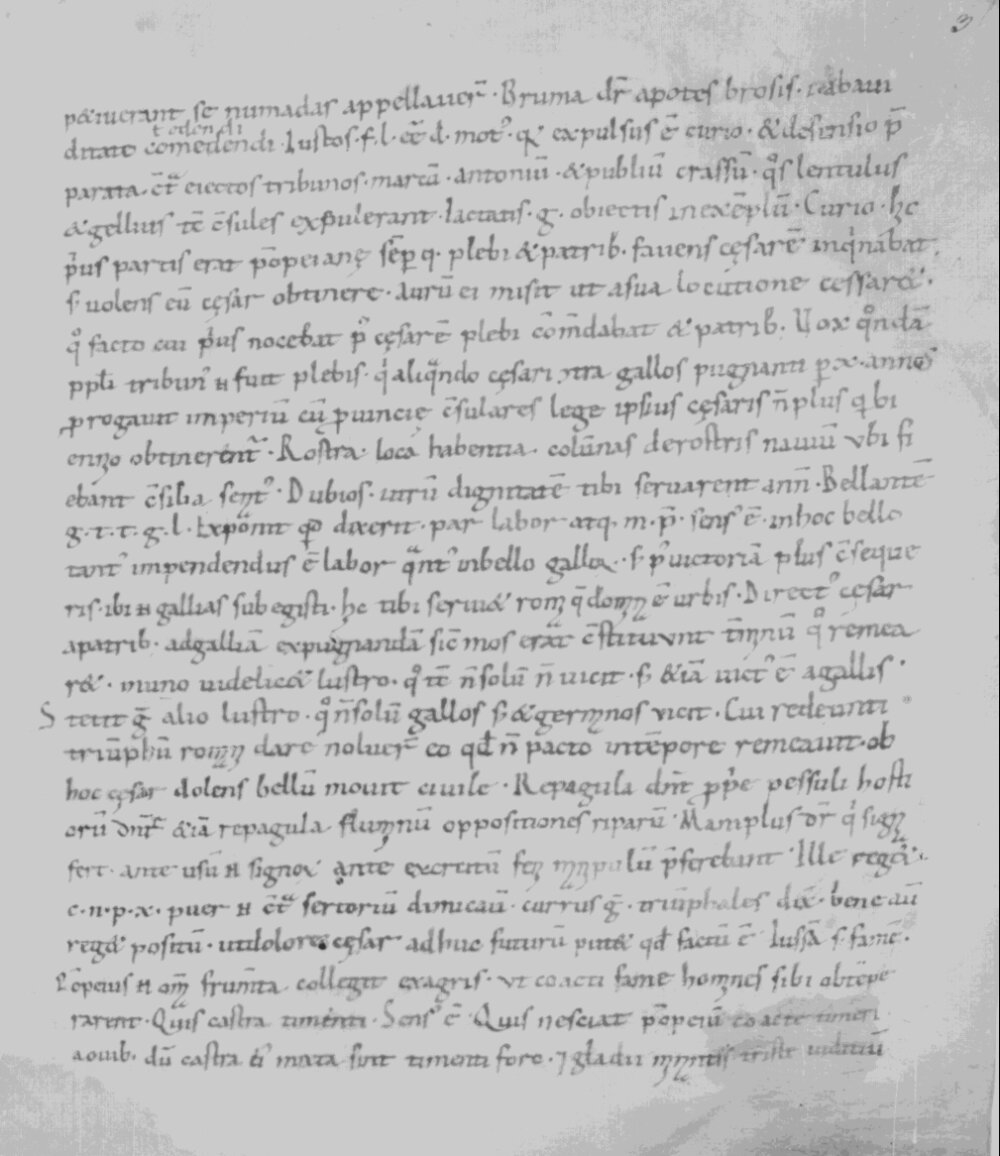 3
petiuerant se numadas appellauer̄. Bruma dr̄ apotes brosis. ieabaui
t edendi
ditate comedendi. Iustos. f. l. cē d. mot᷒. qͥ expulsus ē curio. & desinsio p̄
parata. c̄tᷓ eiectos tribunos. marcū. antoniū. & publiū crassū. qͦs lentulus
& gellius tc̄ c̄sules expulerant. Iactatis. g. obiectis inexēplū. Curio. hc̄
pͥus partis erat pōpeianę sēp q. plebi & patrib. fauens cęsarē inqͥnabat.
s. uolens cū cęsar obtinere. aurū ei misit ut asua locutione cessaret.
qͦ facto cui pͥus nocebat p̄ cęsarē plebi cōm̄dabat & patrib. Uox qͦndā
ppłi tribun᷒ n fuit plebis. qͥ aliqͣndo cęsari ɔtra gallos pugnanti p. x. annos
progauit imperiū cū prouincię c̄sulares lege ipsius cęsaris n̄ plus q bi
ennio obtinerent᷒. Rostra. loca habentia. colūnas derostris nauiū ubi fi
ebant c̄silia sen̄t᷒. Dubios. utrū dignitatē tibi seruarent ann̄. Bellantē
g. t. t. g. l. Exponit qd dixerit. par labor atq. m. p̄. sens᷒ ē. inhoc bello
tant᷒ impendendus ē labor qͣnt᷒ inbello gallico. s. pͥ uictoriā plus c̄seque
ris. ibi n gallias subegisti. hc̄ tibi seruiet rom̄ q̄ dom̄ ē urbis. Direct᷒ cęsar
apatrib. adgalliā expugnandā sic̄ mos erat c̄stituunt tm̄nū qͦ remea
ret. inuno uidelicet lustro. qͦ tc̄ n̄ solū n̄ uicit. s. & iā uict᷒ ē agallis.
Stetit ḡ alio lustro. qͦ n̄ solū gallos s. & germ̄nos uicit. Cui redeunti
triūphū rom̄ dare noluer̄ eo qd n̄ pacto intēpore remeauit. ob
hoc cęsar dolens bellū mouit ciuile. Repagula dn̄t p̄pͥe pessuli hosti
orū dn̄t᷒ & iā repagula flum̄nū oppositiones riparū. Maniplus dr̄ qͥ sign̄
fert. ante usū n signoꝝ ante exercitū feni m̄nipulū p̄ferebant. Ille reget.
c. n. p. x. puer n c̄tᷓ sertoriū dimicaū. currus ḡ. triūphales dix̄. bene aū
reget positū. utdoloret cęsar adhuc futurū putet qd factū ē Iussā. s. famē.
Pōpeius n om̄ frum̄ta collegit exagris. ut coacti fame hom̄nes sibi obtēpe
rarent. Quis castra timenti. Sens᷒ ē. Quis nesciat pōpeiū coacte timeri
aouib. dū castra